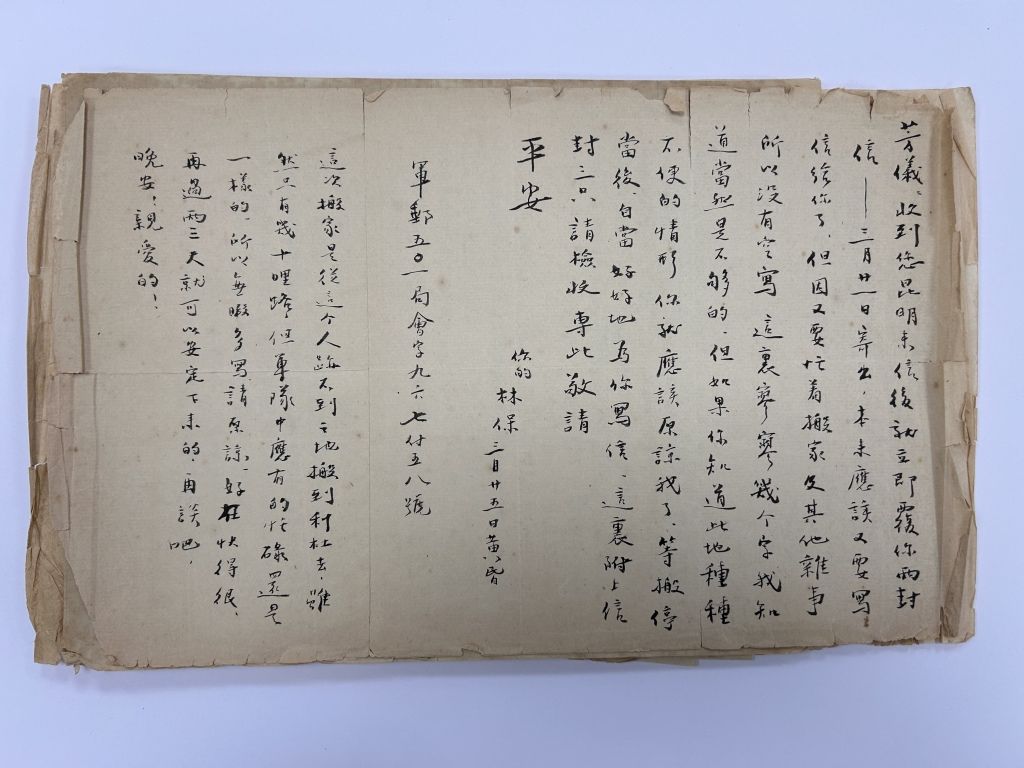 芳儀：收到您昆明來信後就立即覆你兩封
信——三月廿一日寄出，本來應該又要寫
信給你了，但因又要忙着搬家及其他雜事
所以沒有空寫，這裏寥寥幾个字我知
道當然是不够的，但如果你知道此地種種
不便的情形，你就應該原諒我了，等搬停
當後，自當好好地為你寫信，這裏附上信
封三只請檢收專此敬請
平安
你的 林保 三月廿五日黃昏
軍郵五〇一局會字九六七付五八號
這次搬家是從這个人跡不到之地搬到村杜去，雖
然只有幾十哩路，但軍隊中應有的忙碌還是
一樣的，所以無暇多寫請原諒，好在快得很，
再過兩三天就可以安定下來的，再談吧，
晚安，親愛的！